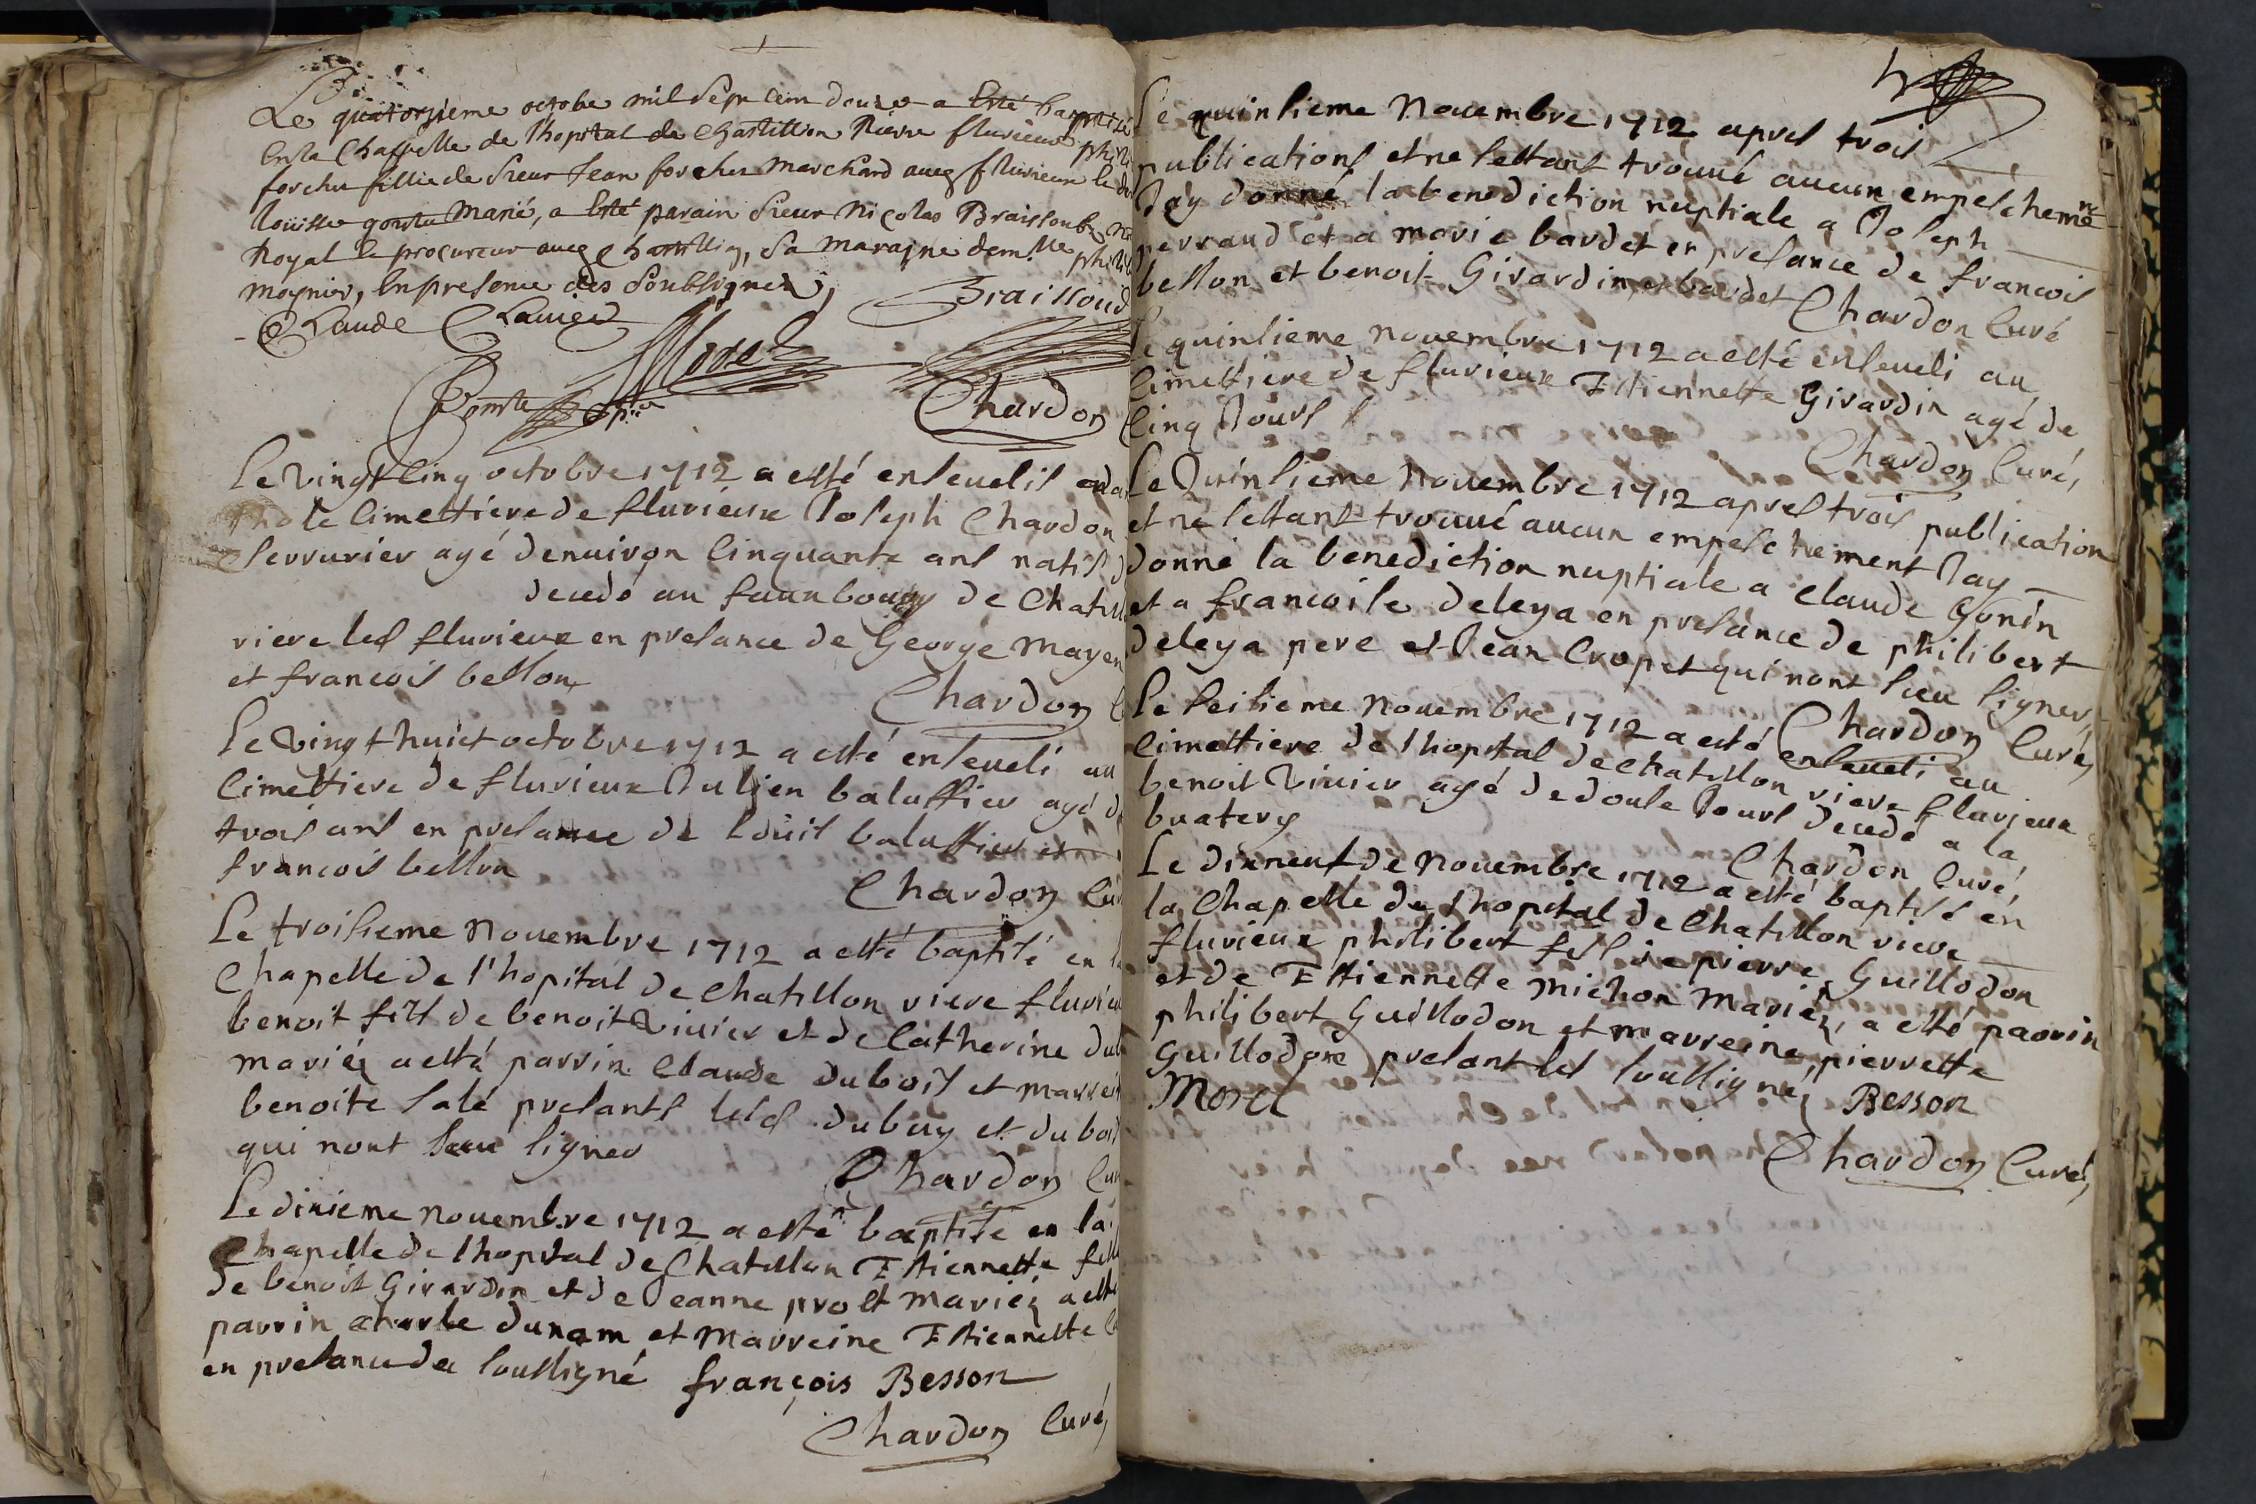 Le quatorzieme octobe mil sept cem douze a esté baptisé
en la Chappelle de l'hopital de Chastillon Riere fluvieux phili
forcher fillie de sieur Jean forcher marchand aueq fluvieux le do
Loüisse marié, a esté parain sieur Nicolas Braissoub no
Royal le procureur aueq Chastillion, sa marajne dem.lle phili
moynier, en presence des soubsignez,
Claude Braissoud
Morel
Chardon
Le vingt cinq octobre 1712 a esté enseuelis
le cimettiere de fluvieux Joseph Chardon
serrurier agé denuiron cinquante ans natif d
decedé au fauxbourg de Chatill
riere led fluvieux en presance de George mayen
et francois bellon
Chardon C
Le vingt huict octobre 1712 a esté enseueli au
cimettiere de fluvieux Julien baluffier agé d
trois ans en presance de loüis baluffier et
francois bellon
Chardon Cur
Le troisieme nouembre 1712 a esté baptisé en l
Chapelle de l'hopital de Chatillon riere fluvieu
benoit fils de benoit Viuier et de Catherine dub
mariéz a esté parrin Claude dubois et marrein
benoite salé presants lesd dubuy et duboi
qui nont sceu signer
Chardon Cur
Le dixieme nouembre 1712 a esté baptisé en la
Chapelle de lhopital de Chatillon Estiennette fill
de benoit Girardin et de Jeanne prost mariéz a esté
parrin charle dunam et marreine Estiennette
en presance des soussigné françois Besson
Chardon Curé,
Le quinsieme Nouembre 1712 apres trois
publications et ne sestant trouué aucun empeschemēt
Jay donné la benediction nuptiale a Joseph
perraud et a marie bardet en presance de francois
bellon et benoit Girardin et bardet
Chardon Curé
Le quinsieme nouembre 1712 a esté enseueli au
Cimettiere de fluvieux Estiennette Girardin agé de
cinq Jours
Chardon Curé,
Le Quinsieme Nouembre 1712 apres trois publication
et ne sestant trouué aucun empeschement Jay
donné la benediction nuptiale a Claude Gonin
et a francoise deleya en presance de philibert
deleya pere et Jean Cropet qui nont sceu signer,
Chardon Curé,
Le seisieme Nouembre 1712 a esté enseueli au
cimettiere de lhopital de Chatillon riere fluvieux
benoit Viuier agé de douse Jours decedé a la
buatery
Chardon Curé,
Le dixneuf de nouembre 1712 a esté baptisé en
la Chapelle de lhopital de Chatillon riere
fluvieux philibert fils de pierre Guillodon
et de Estiennette michon mariéz, a esté parrin
philibert Guillodon et marreine pierrette
Guillodone presant les soussigné,
Morel Besson
Chardon Curé,